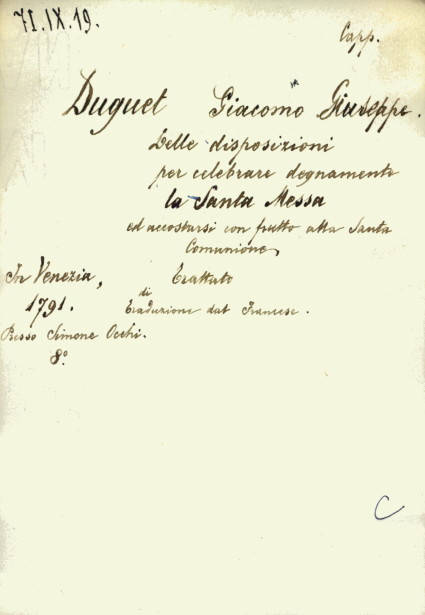 71.IX.19.
Capp.
Duguet Giacomo Giuseppe.
Delle disposizioni
per celebrare degnamente
la Santa Messa
ed accostarsi con frutto alla Santa
Comunione,
In Venezia,
1791.
Presso Simone Occhi.
8°
Trattato
di
Traduzione dal Francese.
C